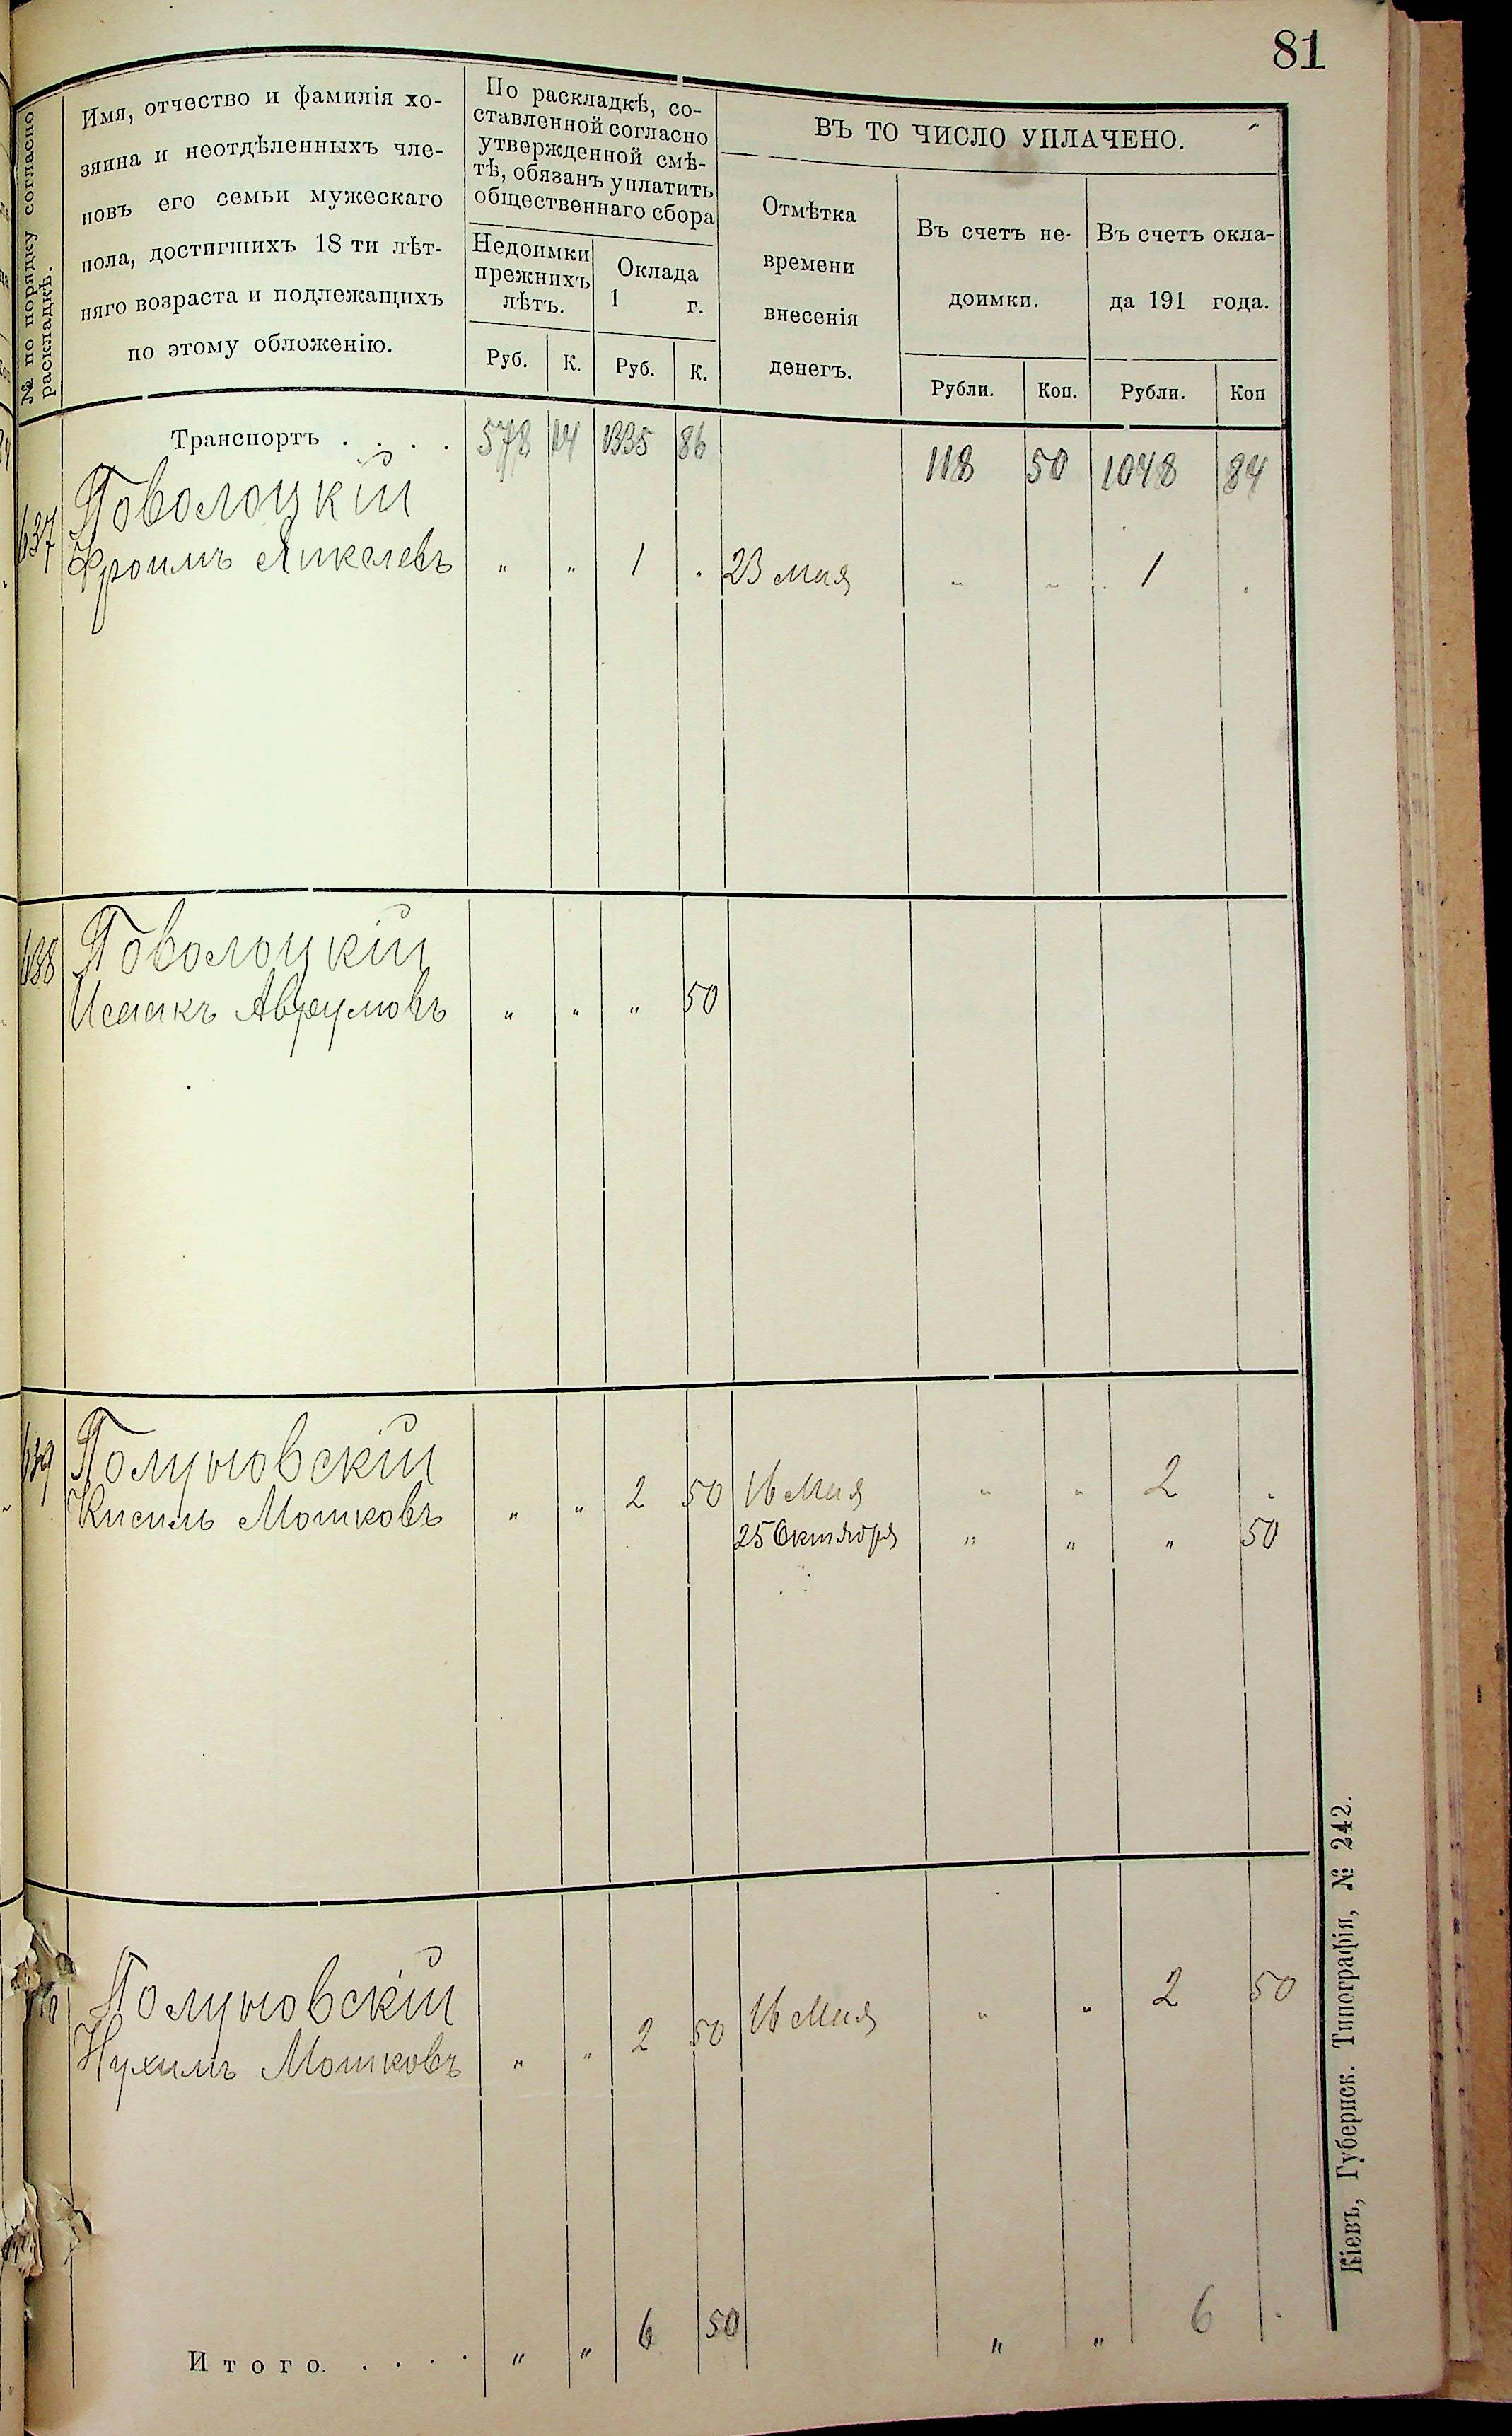 81
№ по порядку согласно раскладкѣ.
Имя, отчество и фамилія хо-
зяина и неотдѣленныхъ чле-
новъ его семьи мужескаго
пола, достигшихъ 18 ти лѣт-
няго возраста и подлежащихъ
по этому обложенію.
По раскладкѣ, со-
ставленной согласно
утвержденной смѣ-
тѣ, обязанъ уплатить
общественнаго сбора
Недоимки
прежнихъ
лѣтъ.
Оклада
1 г.
Руб. К. Руб. К.
ВЪ ТО ЧИСЛО УПЛАЧЕНО.
Отмѣтка
времени
внесенія
денегъ.
Въ счетъ не-
доимки.
Въ счетъ окла-
да 191 года.
Рубли. Коп. Рубли. Коп
Транспортъ . . . . 578 14 1335 86 118 50 1048 84
637 Поволоцкій
Фроимъ Янкелевъ " " 1 . 23 мая " " 1 .
638 Поволоцкій
Исаакъ Аврумовъ " " " 50
639 Полуновскій
Кисиль Мошковъ " " 2 50 16 Мая " " 2 .
25 Октября " " " 50
Полуновскій
Нухимъ Мошковъ " " 2 50 16 Мая " " 2 50
Итого. . . . . " " 6 50 " " 6 .
Кіевъ, Губернск. Типографія, № 242.